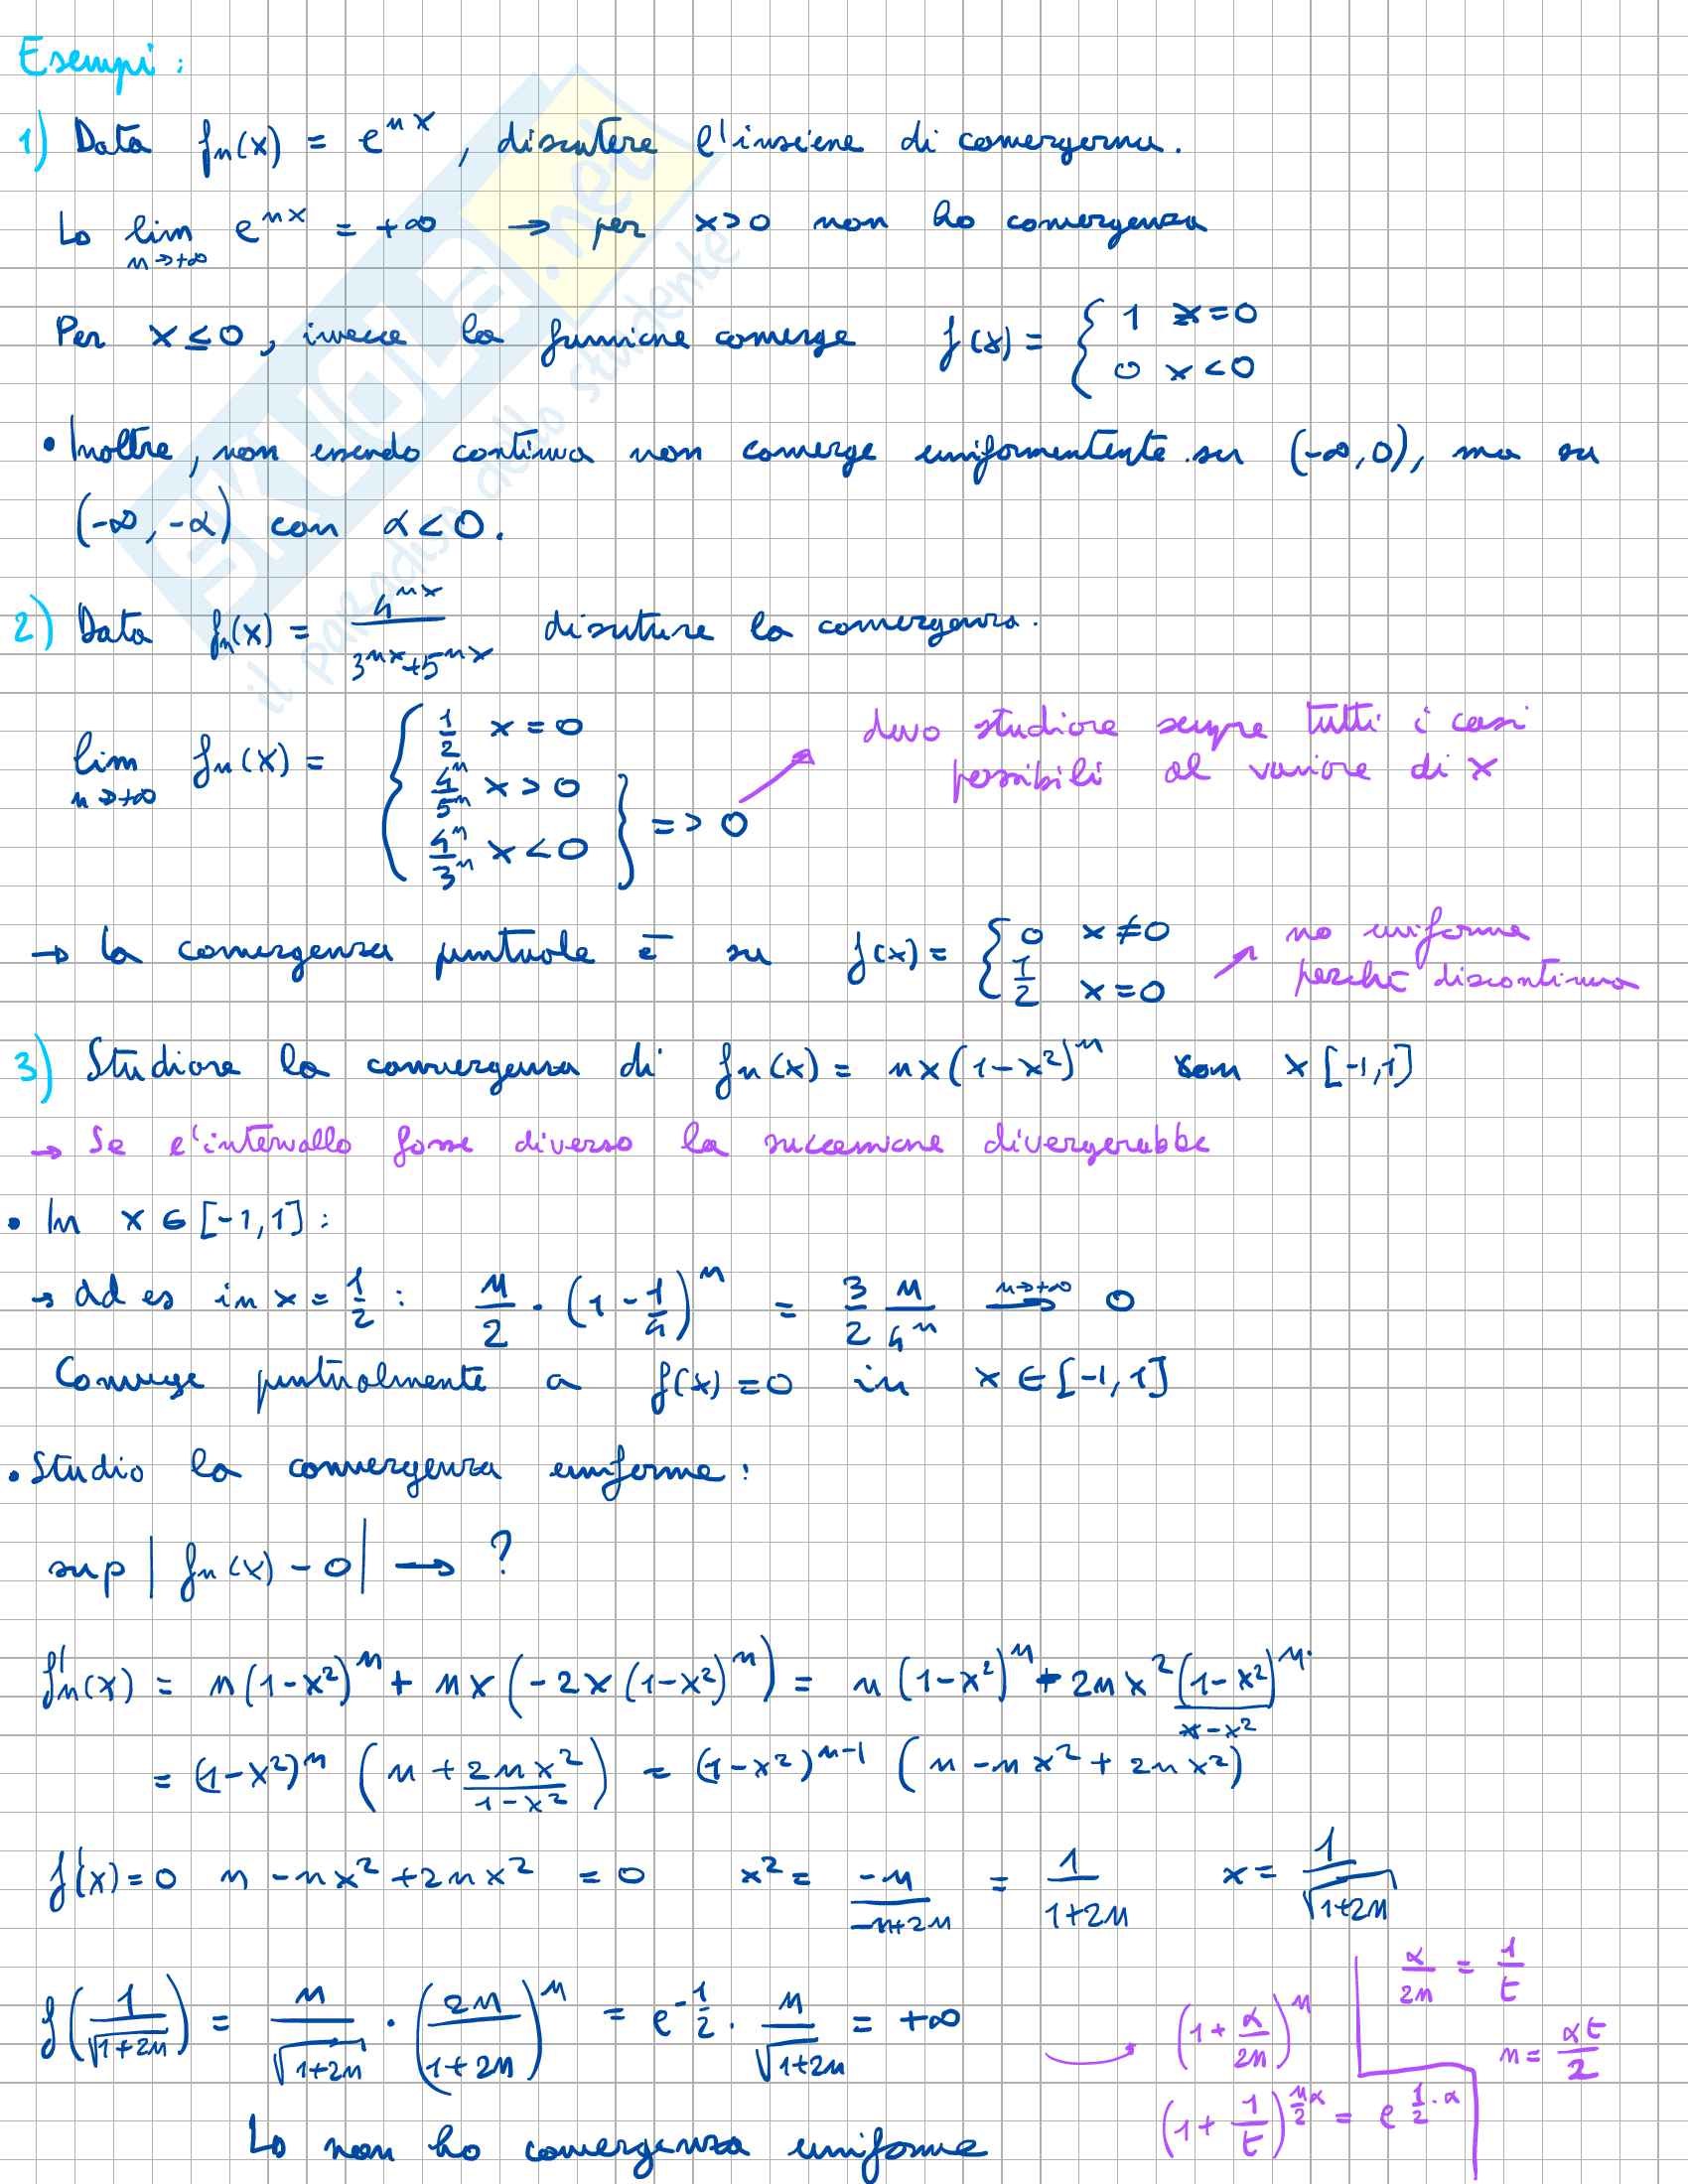 Esempi:
1) Data fn(x) = e^{nx}, discutere l'insieme di convergenza.
Lo lim_{n→+∞} e^{nx} = +∞ → per x>0 non ho convergenza
Per x≤0, invece la funzione converge f(x) = { 1 x=0
0 x<0
• Inoltre, non essendo continua non converge uniformentente su (-∞,0), ma su
(-∞,-α) con α<0.
2) Data fn(x) = 4^{nx} / 3^{nx}+5^{nx} discuture la convergenza.
lim_{n→+∞} fn(x) = { 1/2 x=0
4^n/5^n x>0
4^n/3^n x<0 } => 0
devo studiare sempre tutti i casi
possibili al variare di x
→ la convergenza puntuale è su f(x) = { 0 x≠0
1/2 x=0
no uniforme
perché discontinua
3) Studiare la convergenza di fn(x) = nx(1-x²)^n con x [-1,1]
→ Se l'intervallo fosse diverso la successione divergerebbe
• In x ∈ [-1,1]:
→ ad es in x = 1/2 : n/2 · (1 - 1/4)^n = 3/2 n/4^n →^{n→+∞} 0
Converge puntualmente a f(x)=0 in x ∈ [-1,1]
• Studio la convergenza uniforme:
sup | fn(x) - 0 | → ?
f'n(x) = n(1-x²)^n + nx(-2x(1-x²)^n) = n(1-x²)^n + 2nx² (1-x²)^n / x-x²
= (1-x²)^n (n + 2nx²/1-x²) = (1-x²)^{n-1} (n - nx² + 2nx²)
f'(x)=0 n - nx² + 2nx² = 0 x² = -n/-n+2n = 1/1+2n x = 1/√1+2n
f(1/√1+2n) = n/√1+2n · (2n/1+2n)^n = e^{-1/2} · n/√1+2n = +∞
(1 + α/2n)^n
α/2n = 1/t
n = αt/2
(1 + 1/t)^{n/2 α} = e^{1/2 · α}
Lo non ho convergenza uniforme
SKUOLA.net
il paradiso dello studente